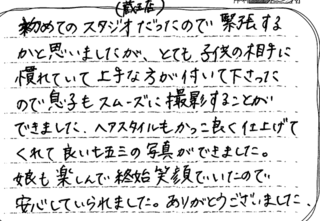 (蔵王店)
初めてのスタジオだったので緊張する
かと思いましたが、とても子供の相手に
慣れていて上手な方が付いて下さった
ので息子もスムーズに撮影することが
できました。ヘアスタイルもかっこ良く仕上げて
くれて良い七五三の写真ができました。
娘も楽しんで終始笑顔でいたので
安心していられました。ありがとうございました